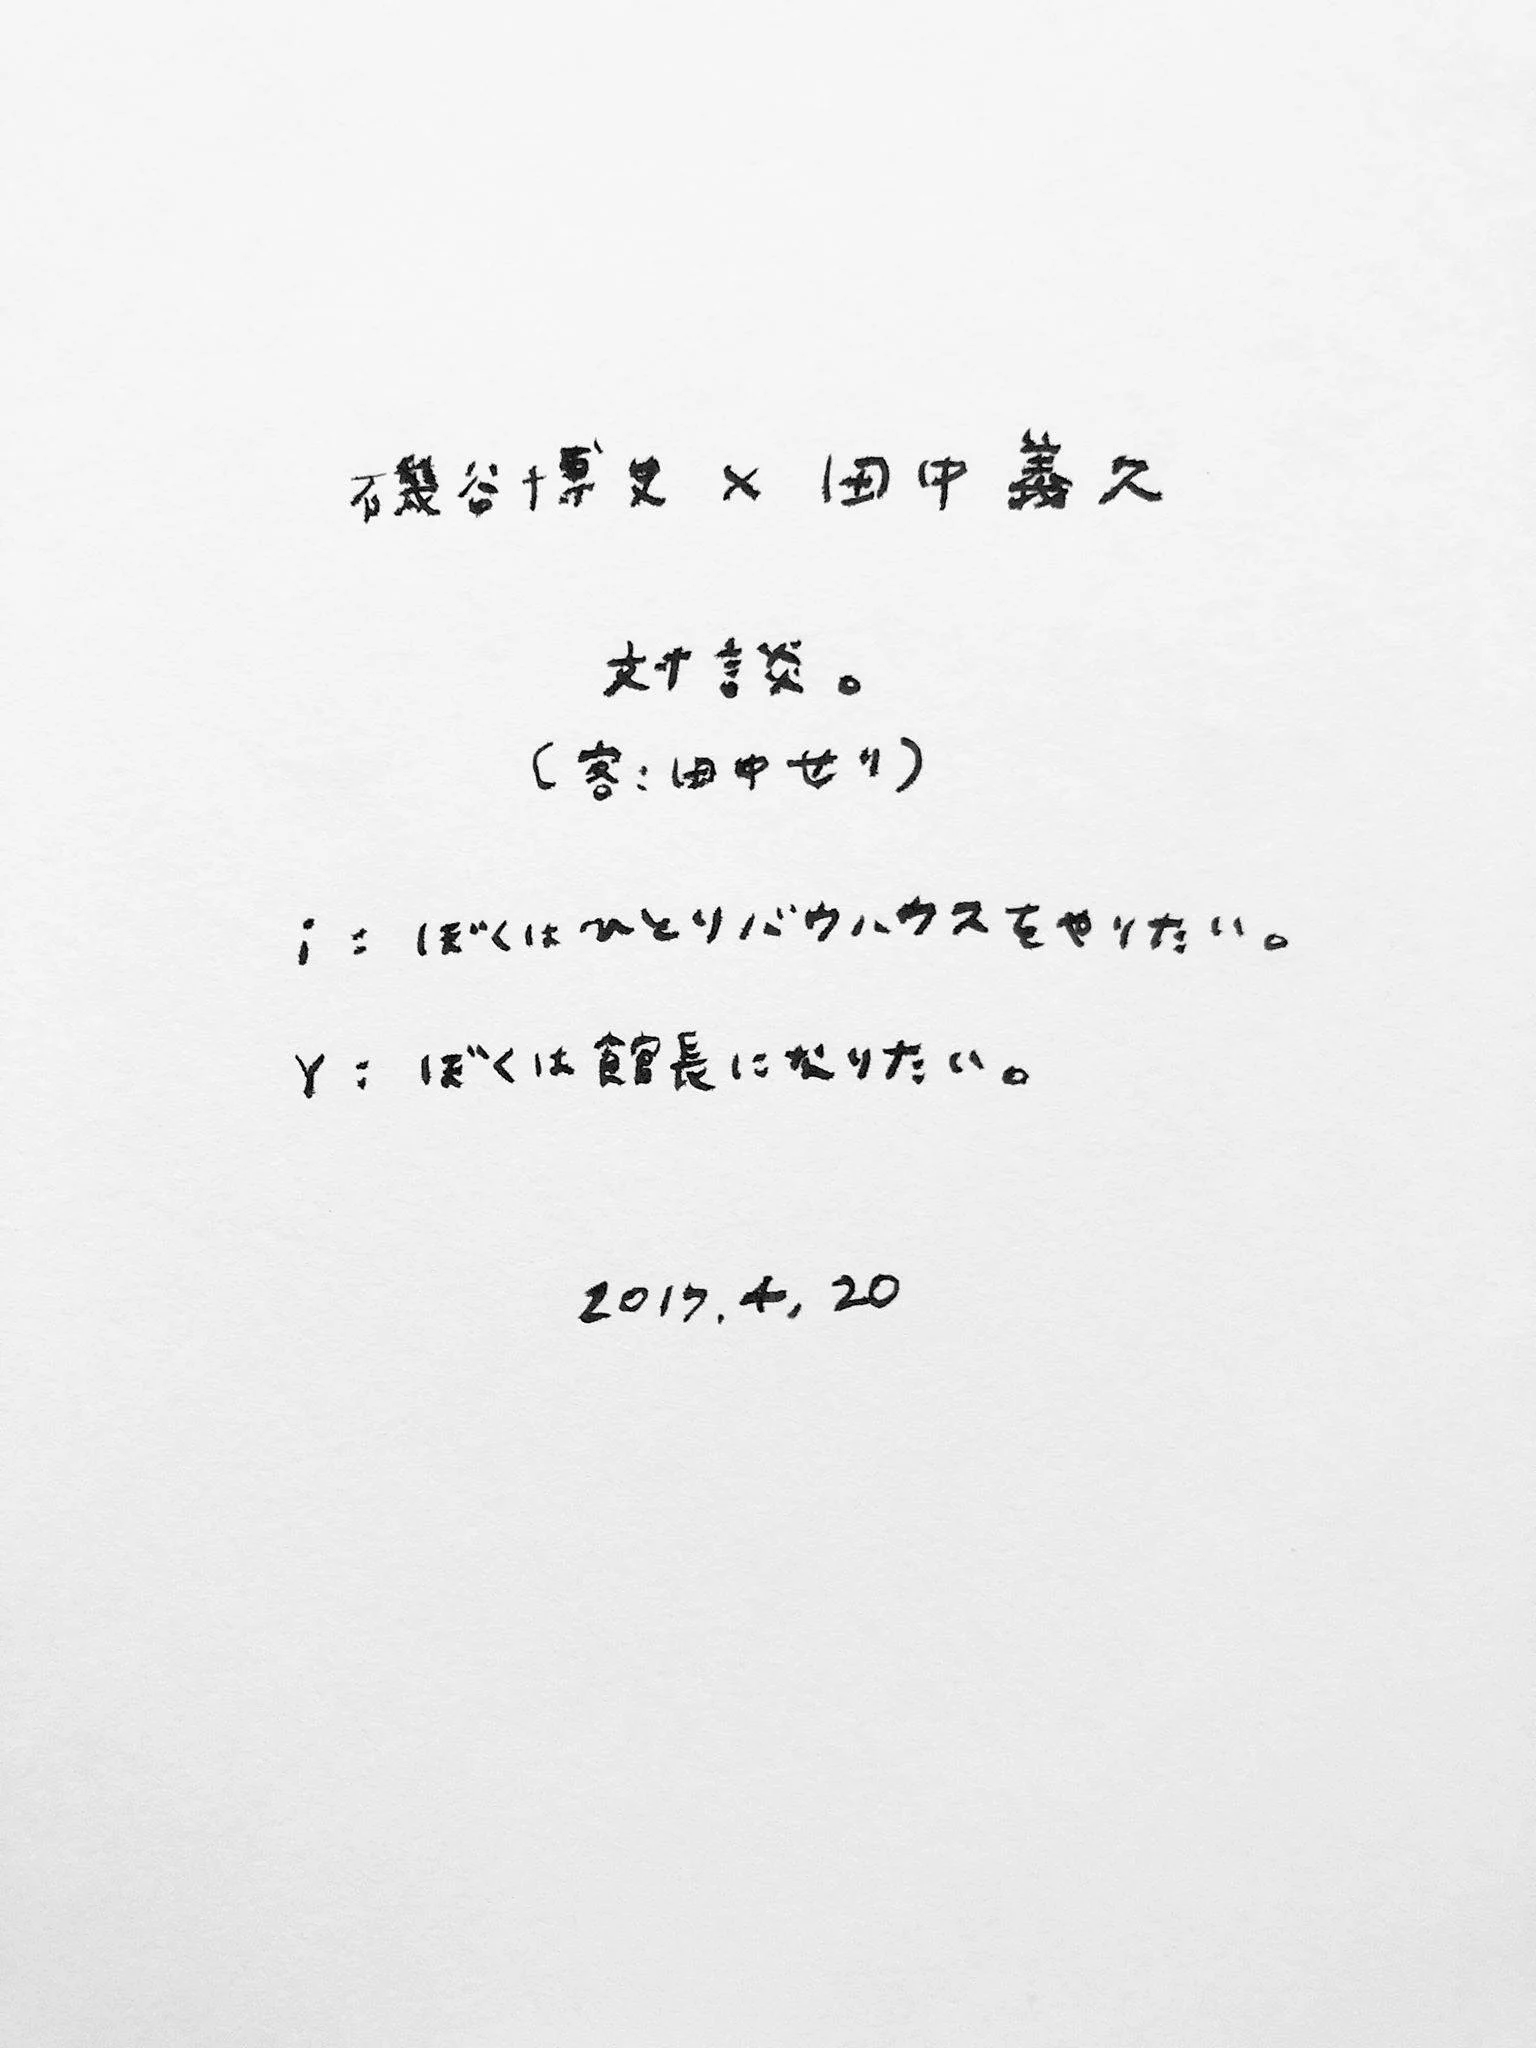 磯谷博史 × 田中義久
対談。
(客:田中せり)
i : ぼくはひとりバウハウスをやりたい。
Y : ぼくは館長になりたい。
2017.4.20